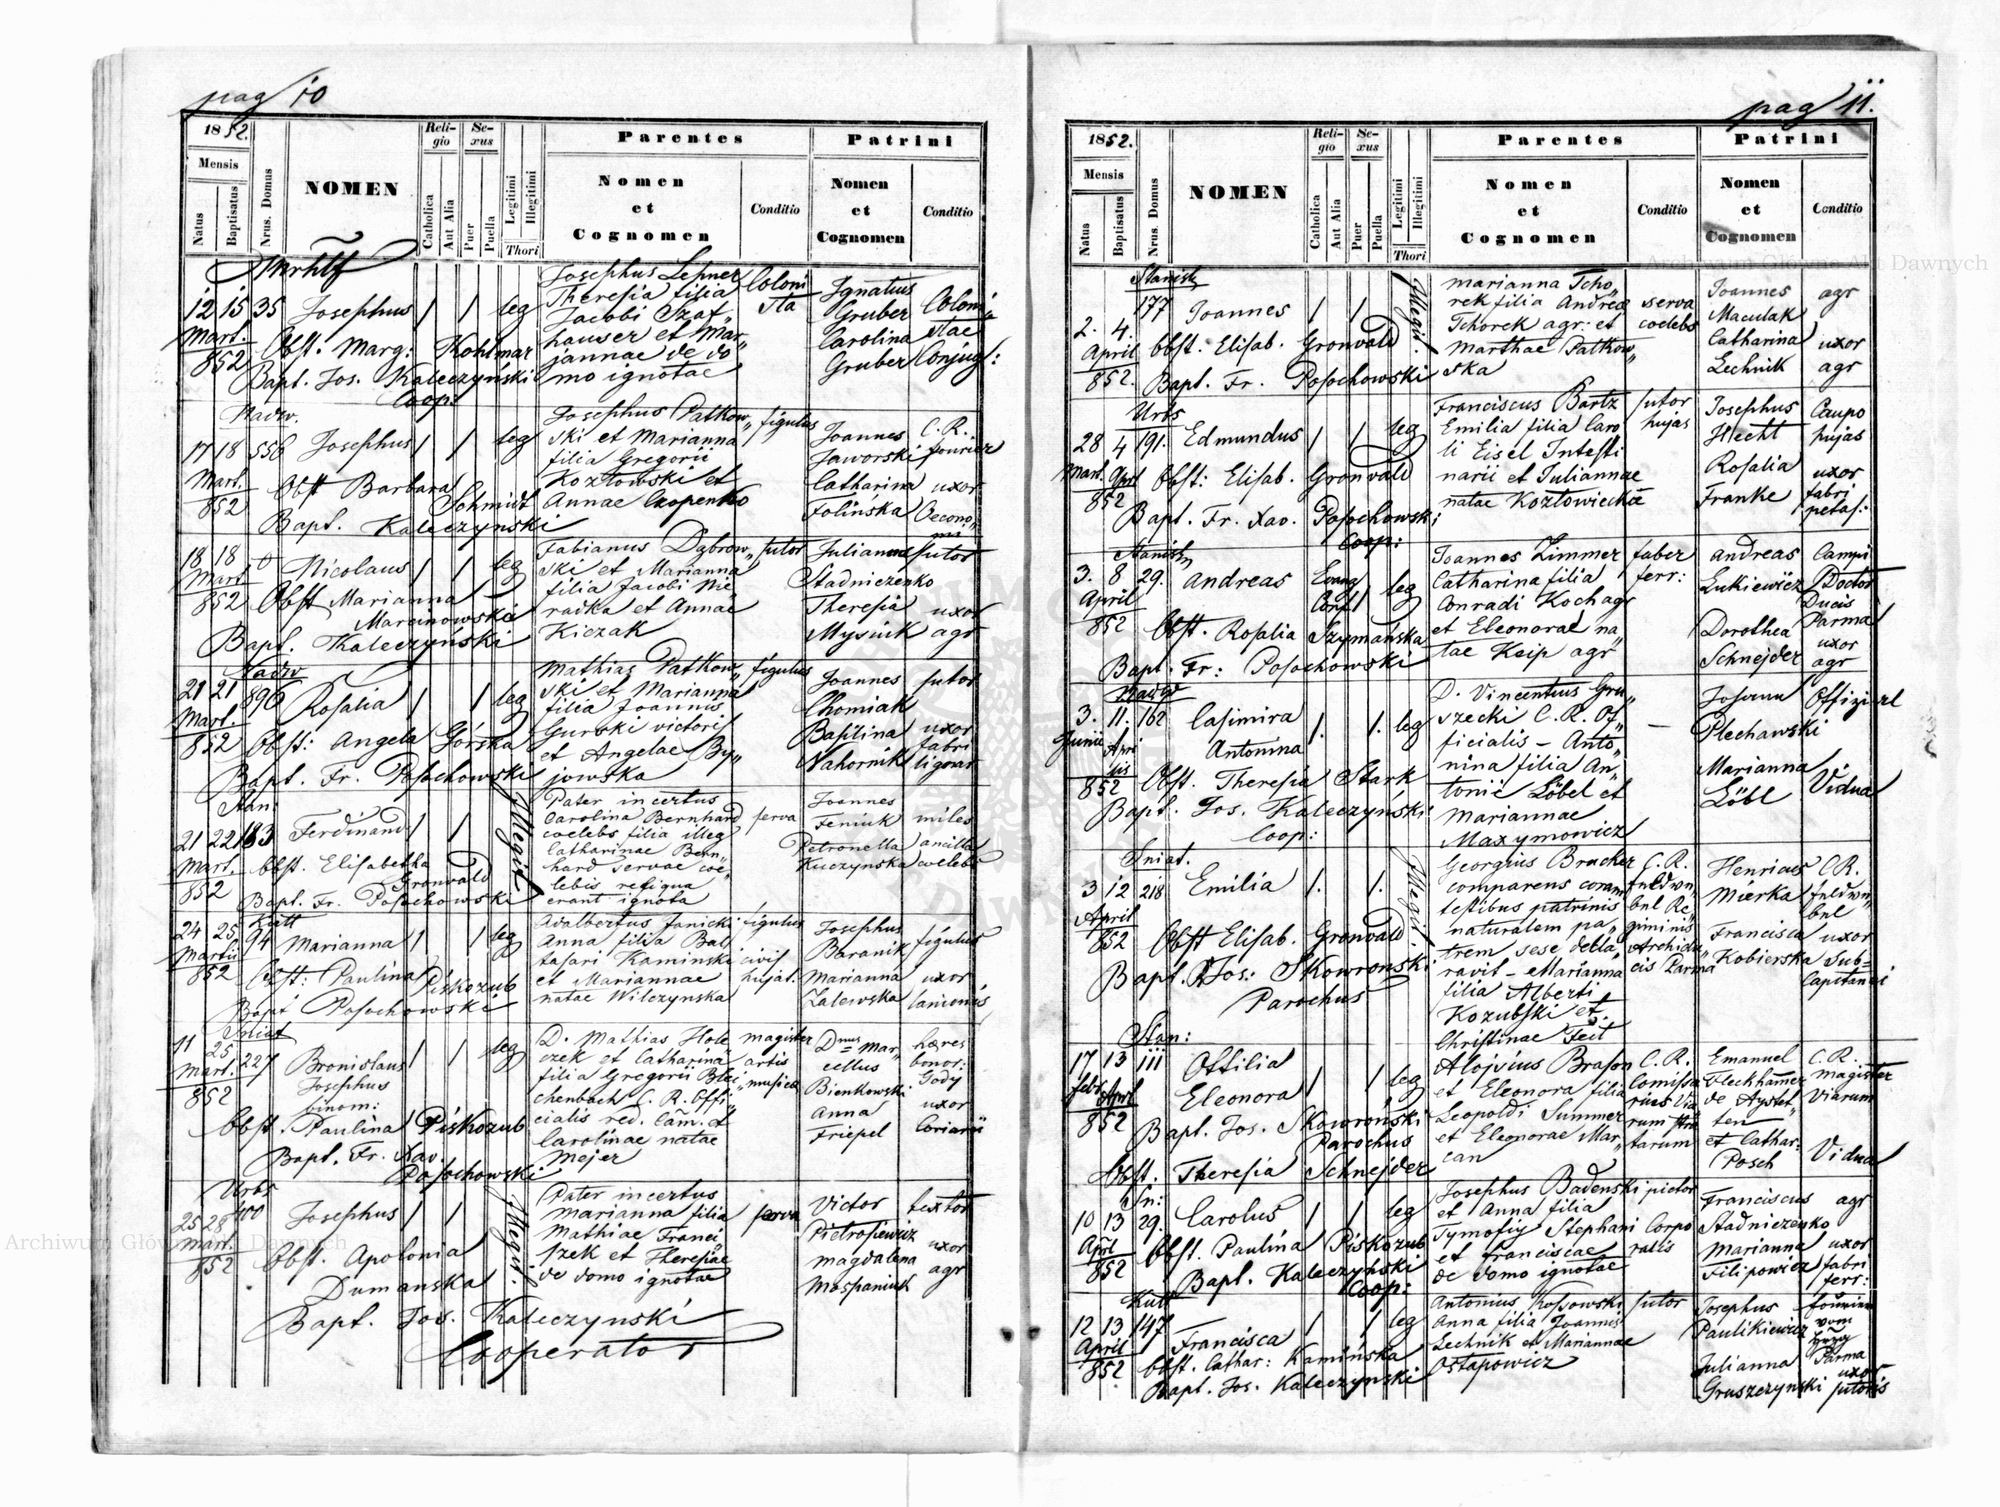 pag 10
1852.
Mensis
Natus
Baptisatus
Nrus. Domus
NOMEN
Religio
Catholica
Aut Alia
Sexus
Puer
Puella
Legitimi
Illegitimi
Thori
Parentes
Nomen
et
Cognomen
Conditio
Patrini
Nomen
et
Cognomen
Conditio
12 15 35 Josephus 1 1 leg
Mart.
852 Obst. Marg: Kohlmar
Bapt. Jos. Kaleczyński
Coop:
Josephus Lepner
Theresia filia
Jacobi Szaf„
hauser et Mar„
jannae de do
mo ignotae
Coloni
sta
Ignatius
Gruber
Carolina
Gruber
Coloni
stae
Conjug:
Nadw.
17 18 556 Josephus 1 1 leg
Mart.
852 Obst Barbara
Schmidt
Bapt. Kaleczynski
Josephus Patkow„
ski et Marianna
filia Gregorii
Kozłowski et
Annae Czopenko
figulus
Joannes
Jaworski
Catharina
Folińska
C. R.
fourier
uxor
Oecono„
mi
18 18 0 Nicolaus 1 1 leg
Mart
852 Obst Marianna
Marcinowska
Bapt. Kaleczyński
Fabianus Dąbrow„
ski et Marianna
filia Jacobi Nie„
radka et Annae
Kiczak
sutor
Julianna
Stadniczenko
Theresia
Mysiuk
sutor
uxor
agr
Nadw
21 21 896 Rosalia 1 1 leg
Mart.
852 Obst: Angela Górska
Bapt. Fr. Posochowski
Mathias Patkow„
ski et Marianna
filia Joannis
Gurski victori
et Angelae By„
jowska
figulus
Joannes
Chomiak
Basilina
Nahornik
sutor
uxor
fabri
lignar
Stan:
21 22 183 Ferdinand 1 1 Illegit.
Mart.
852 Obst. Elisabetha
Gronvald
Bapt. Fr. Posochowski
Pater incertus
Carolina Bernhard
coelebs filia illeg
Catharinae Bern„
hard servae coe„
lebis reliqua
erant ignota
serva
Joannes
Feniuk
Petronella
Kuczynska
miles
ancilla
coelebs
Kutt
24 25 94 Marianna 1 1 leg
Martii
852 Obst: Paulina Piskozub
Bapt Posochowski
Adalbertus Janicki
Anna filia Bal
tasari Kaminski
et Mariannae
natae Wilczynska
figulus
civis
hujat.
Josephus
Baranik
Marianna
Zalewska
figulus
uxor
lanionis
11 25 227 Bronislaus 1 1 leg
Mart.
852 Josephus
binom:
Obst. Paulina Piskozub
Bapt. Fr. Xav.
Posochowski
D. Mathias Hole
czek et Catharina
filia Gregorii Blei„
chenbach C. R. Offi„
cialis red. Cam. et
Carolinae natae
Mejer
magister
artis
musica
Dnus Mar„
cellus
Bienkowski
Anna
Friepel
haeres
bonor:
Gody
uxor
coriarii
Urbs
25 28 400 Josephus 1 1 Illegit.
Mart.
852 Obst. Apolonia
Dumanska
Bapt. Jos. Kaleczynski
Cooperator
Pater incertus
Marianna filia
Mathiae Franci„
szek et Theresiae
de domo ignotae
serva
Victor
Pietrasiewicz
Magdalena
Mospaniuk
textor
uxor
agr
pag 11.
1852.
Mensis
Natus
Baptisatus
Nrus. Domus
NOMEN
Religio
Catholica
Aut Alia
Sexus
Puer
Puella
Legitimi
Illegitimi
Thori
Parentes
Nomen
et
Cognomen
Conditio
Patrini
Nomen
et
Cognomen
Conditio
Stanisl
2. 4. 177 Joannes 1 1 Illegit.
April
852. Obst. Elisab. Gronvald
Bapt. Fr. Posochowski
Marianna Tcho„
rek filia Andrea
Tchorek agr: et
Marthae Patkow„
ska
serva
coelebs
Joannes
Maculak
Catharina
Lechnik
agr
uxor
agr
Urbs
28 4 191. Edmundus 1 1 leg
Mart. Aprl
852 Obst: Elisab. Gronvald
Bapt. Fr. Xav. Posochowski
Coop:
Franciscus Bartz
Emilia filia Caro
li Eisel Intesti
narii et Juliannae
natae Kozłowiecka
sutor
hujas
Josephus
Hecht
Rosalia
Franke
Caupo
hujas
uxor
fabri
petas:
Stanisl
3. 8 29. Andreas Evang Conf. 1 leg
April
852 Obst. Rosalia Szymańska
Bapt. Fr: Posochowski
Joannes Zimmer
Catharina filia
Conradi Koch agr
et Eleonorae na„
tae Keip agr
faber
ferr:
Andreas
Lukiewicz
Dorothea
Schnejder
Campi
Doctor
Ducis
Parma
uxor
agr
Nadw
3. 11. 162 Casimira 1. 1. leg
Junii Apri
lis
852 Antonina
Obst. Theresia Stark
Bapt. Jos. Kaleczyński
Coop:
D. Vincentius Gru„
szecki C. R. Of„
ficialis – Anto„
nina filia An„
tonii Löbel et
Mariannae
Maxymowicz
—
Johann
Plechawski
Marianna
Löbl
Offizial
Vidua
Sniat.
3 12 218 Emilia 1. 1. Illegit.
April
852 Obst Elisab. Gronvald
Bapt. Jos: Skowroński
Parochus
Georgius Brucher
comparens coram
testibus patrinis
naturalem pa„
trem sese decla„
ravit – Marianna
filia Alberti
Kozubski et
Christinae Feit
C. R.
feldwe„
bel Re„
giminis
Archidu„
cis Parma
Henricus
Mierka
Francisca
Kobierska
C. R.
feldwe„
bel
uxor
Sub=
Capitanei
Stan:
17 13 111 Ottilia 1 1 leg
febr Aprl
852 Eleonora
Bapt. Jos. Skowroński
Parochus
Obst. Theresia Schnejder
Aloysius Brason
et Eleonora filia
Leopoldi Summer
et Eleonorae Mar„
can
C. R.
Comissa
rius Via
rum stra
tarum
Emanuel
Fleckhamer
de Aystet„
ten
et Cathar:
Posch
C. R.
magister
viarum
Vidua
10 13 29. Carolus 1 1 leg
April
852 Obst. Paulina Piskozub
Bapt. Kaleczyński
Coop:
Josephus Badenski
et Anna filia
Tymofiy Stephani
et Franciscae
de domo ignotae
pictor
Corpo
ralis
Franciscus
Stadniczenko
Marianna
Filipowicz
agr
uxor
fabri
ferr:
Kutt
12 13 147 Francisca 1 1 leg
April
852 Obst. Cathar: Kamińska
Bapt. Jos. Kaleczynski
Antonius Kossowski
Anna filia Joannis
Lechnik et Mariannae
Ostapowicz
sutor
Josephus
Paulikiewicz
Julianna
Gruszczynski
fourier
vom
Parma
uxor
sutoris
Archiwum Główne Akt Dawnych
Archiwum Główne Akt Dawnych